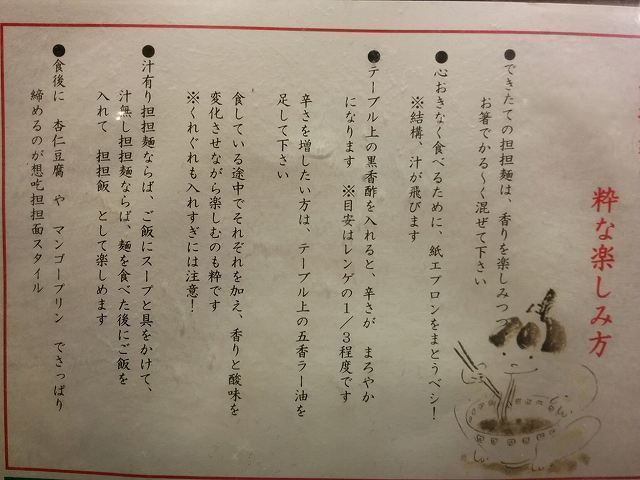 粋な楽しみ方
●できたての担担麺は、香りを楽しみつつ
お箸でかる～く混ぜて下さい
●心おきなく食べるために、紙エプロンをまとうベシ！
※結構、汁が飛びます
●テーブル上の黒香酢を入れると、辛さが　まろやか
になります　※目安はレンゲの１／３程度です
辛さを増したい方は、テーブル上の五香ラー油を
足して下さい
食している途中でそれぞれを加え、香りと酸味を
変化させながら楽しむのも粋です
※くれぐれも入れすぎには注意！
●汁有り担担麺ならば、ご飯にスープと具をかけて、
汁無し担担麺ならば、麺を食べた後にご飯を
入れて　担担飯　として楽しめます
●食後に　杏仁豆腐　や　マンゴープリン　でさっぱり
締めるのが想吃担担面スタイル